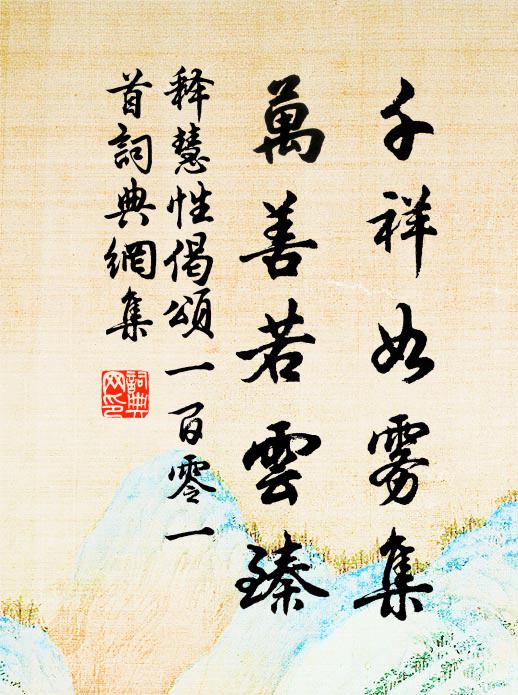 千祥如雾集
萬善若雲臻
释慧性偈頌一百零一
首詞典網集
詞典
网印